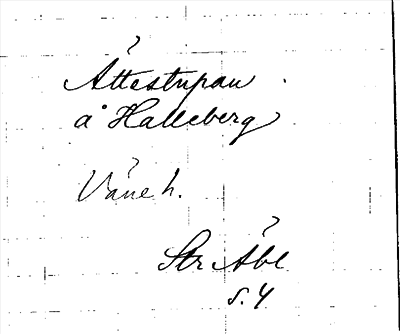 Ättestupan
å Halleberg
Väne h.
Str Äbl
s. 4